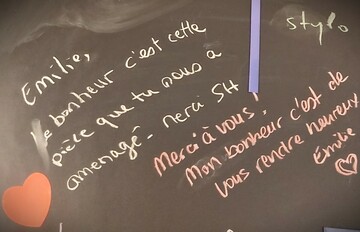 Emilie,
le bonheur c'est cette
pièce que tu nous a
amenagé. Merci SH
stylo
Merci à vous !
Mon bonheur c'est de
vous rendre heureux
Émilie